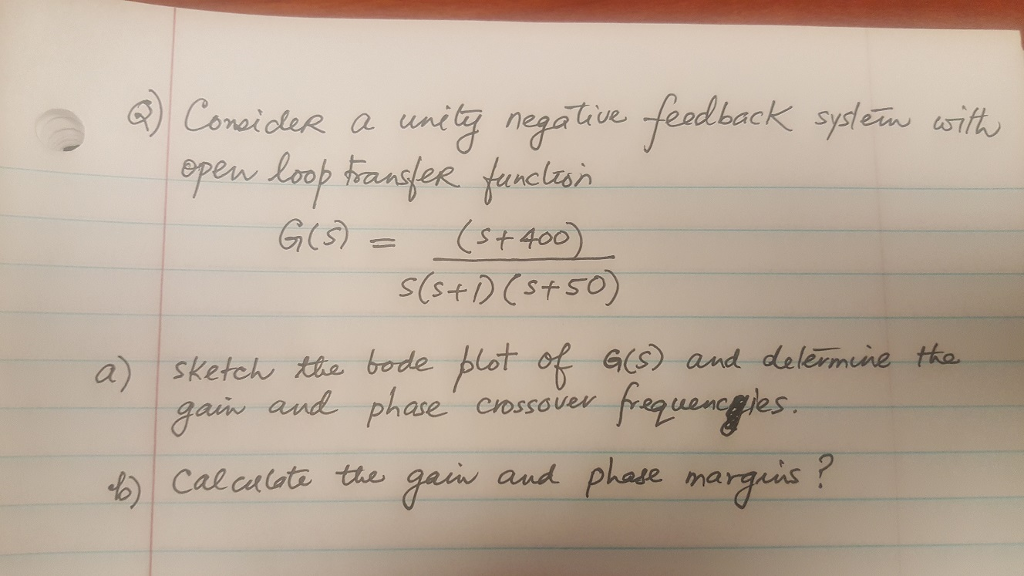 Q) Consider a unity negative feedback system with
open loop transfer function
G(S) = (S+400)
S(S+1)(S+50)
a) sketch the bode plot of G(S) and determine the
gain and phase crossover frequencies.
b) Calculate the gain and phase margins?